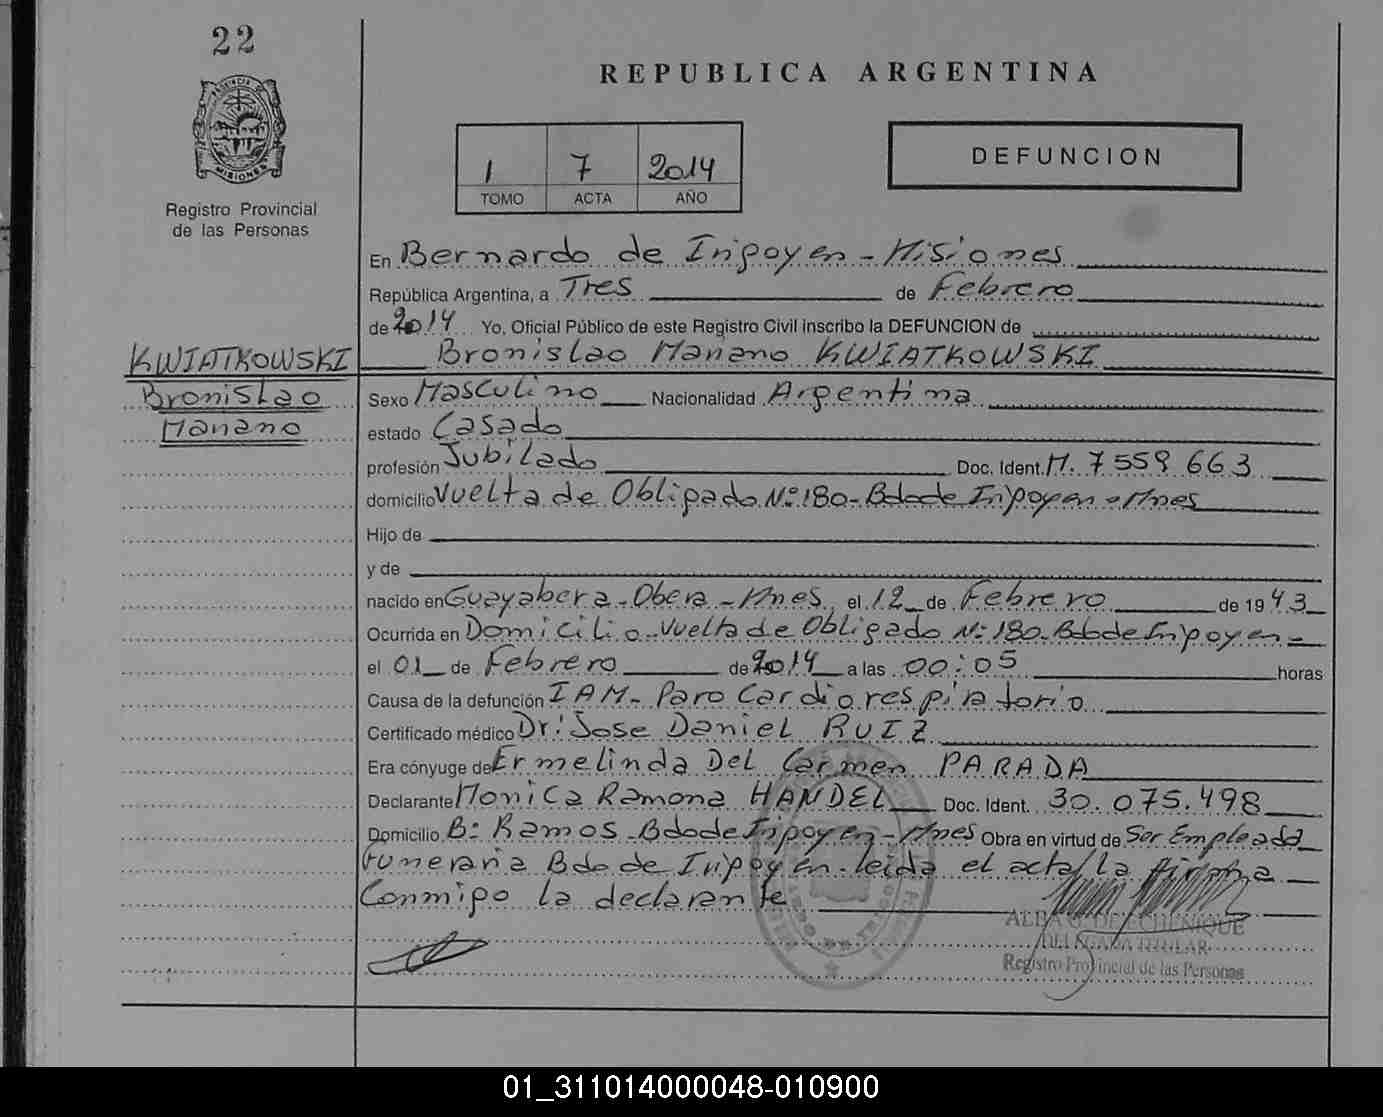 22
REPUBLICA ARGENTINA
PROVINCIA DE MISIONES
Registro Provincial
de las Personas
1 7 2014
TOMO ACTA AÑO
DEFUNCION
En Bernardo de Irigoyen - Misiones
República Argentina, a Tres de Febrero
de 2014 Yo, Oficial Público de este Registro Civil inscribo la DEFUNCION de
KWIATKOWSKI Bronislao Mariano KWIATKOWSKI
Bronislao
Mariano
Sexo Masculino Nacionalidad Argentina
estado Casado
profesión Jubilado Doc. Ident. M. 7559 663
domicilio Vuelta de Obligado Nº 180 - Bdo de Irigoyen - Mnes
Hijo de
y de
nacido en Guayabera - Obera - Mnes el 12 de Febrero de 1943
Ocurrida en Domicilio - Vuelta de Obligado Nº 180 - Bdo de Irigoyen -
el 01 de Febrero de 2014 a las 00:05 horas
Causa de la defunción IAM - Paro Cardiorespiratorio
Certificado médico Dr: Jose Daniel RUIZ
Era cónyuge de Ermelinda Del Carmen PARADA
Declarante Monica Ramona HANDEL Doc. Ident. 30.075.498
Domicilio Bº Ramos - Bdo de Irigoyen - Mnes Obra en virtud de Ser Empleada
Funeraria Bdo de Irigoyen - leida el acta, la firma
Conmigo la declarante
DELEGADA TITULAR
Registro Provincial de las Personas
01_311014000048-010900